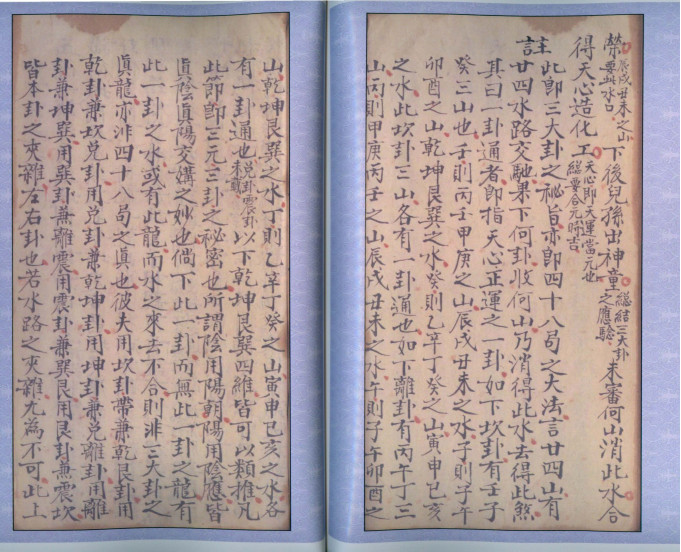 榮辰戌丑未之山要與水口下後兒孫出神童總結三大卦之應驗未審何山消此水合
得天心造化工天心即天運當元也總要合元時吉
註此卽三大卦之秘旨亦卽四十八局之大法言廿四山有
廿四水路交馳果下何卦收何山乃消得此水去得此煞
其曰一卦通者卽指天心正運之一卦如下坎卦有壬子
癸三山也壬則丙壬甲庚之山辰戌丑未之水子則子午
卯酉之山乾坤艮巽之水癸則乙辛丁癸之山寅申巳亥
之水此坎卦三山各有一卦通也如下離卦有丙午丁三
山丙則甲庚丙壬之山辰戌丑未之水午則子午卯酉之
山乾坤艮巽之水丁則乙辛丁癸之山寅申巳亥之水各
有一卦通也兌卦震卦未以下乾坤艮巽四維皆可以類推凡
此節卽三元三卦之秘密也所謂陰用陽朝陽用陰應皆
眞陰眞陽交媾之妙也倘下此一卦而無此一卦之龍有
此一卦之水或有此龍而水之來去不合則非三大卦之
眞龍亦非四十八局之眞也彼夫用坎卦帶兼乾艮卦用
乾卦兼坎兌卦用兌卦兼乾坤卦用坤卦兼兌離卦用離
卦兼坤巽用巽卦兼離震用震卦兼巽艮用艮卦兼震坎
皆本卦之夾雜左右卦也若水路之夾雜尤為不可此上